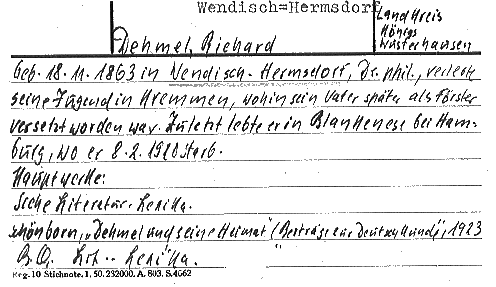 Wendisch=Hermsdorf
Landkreis
Königs
Wusterhausen
Dehmel, Richard
Geb. 18. 11. 1863 in Wendisch-Hermsdorf, Dr. phil., verlebte
seine Jugend in Kremmen, wohin sein Vater später als Förster
versetzt worden war. Zuletzt lebte er in Blankenese bei Ham-
burg, wo er 8. 2. 1920 starb.
Hauptwerke:
Siehe Literatur-Lexika.
Schönborn, "Dehmel und seine Heimat" (Beiträge zur Deutschkunde", 1923
B. Q. Lit.-Lexika.
Reg. 10 Stichnote. 1, 50. 232000. A. 803. S. 4662